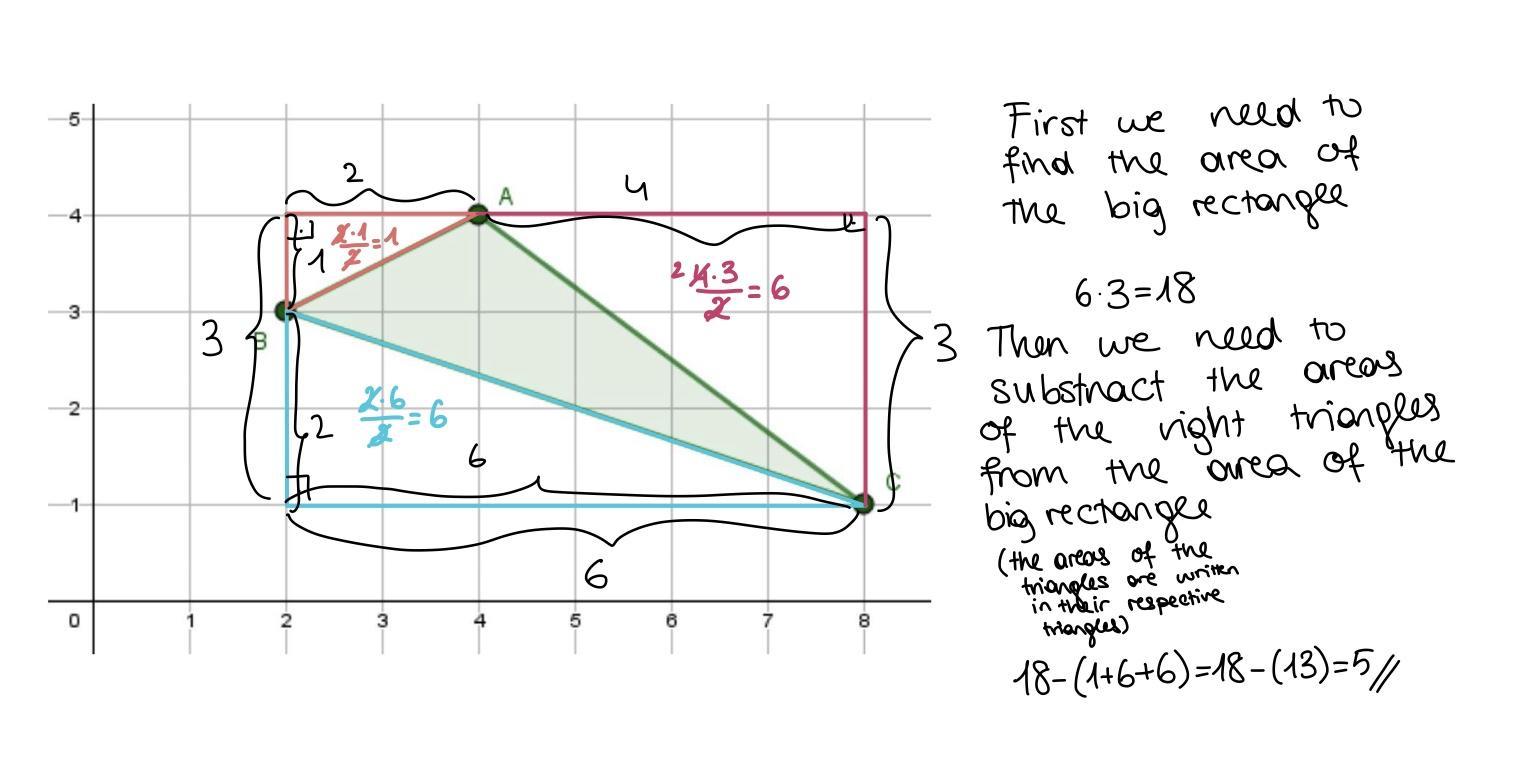 First we need to
find the area of
the big rectangle
6·3=18
Then we need to
substract the areas
of the right triangles
from the area of the
big rectangle
(the areas of the
triangles are written
in their respective
triangles)
18-(1+6+6)=18-(13)=5//
5
2
4
A
4
2·1/2=1
1
2 4·3/2=6
3
3
B
3
2·6/2=6
2
2
6
C
1
6
0 1 2 3 4 5 6 7 8